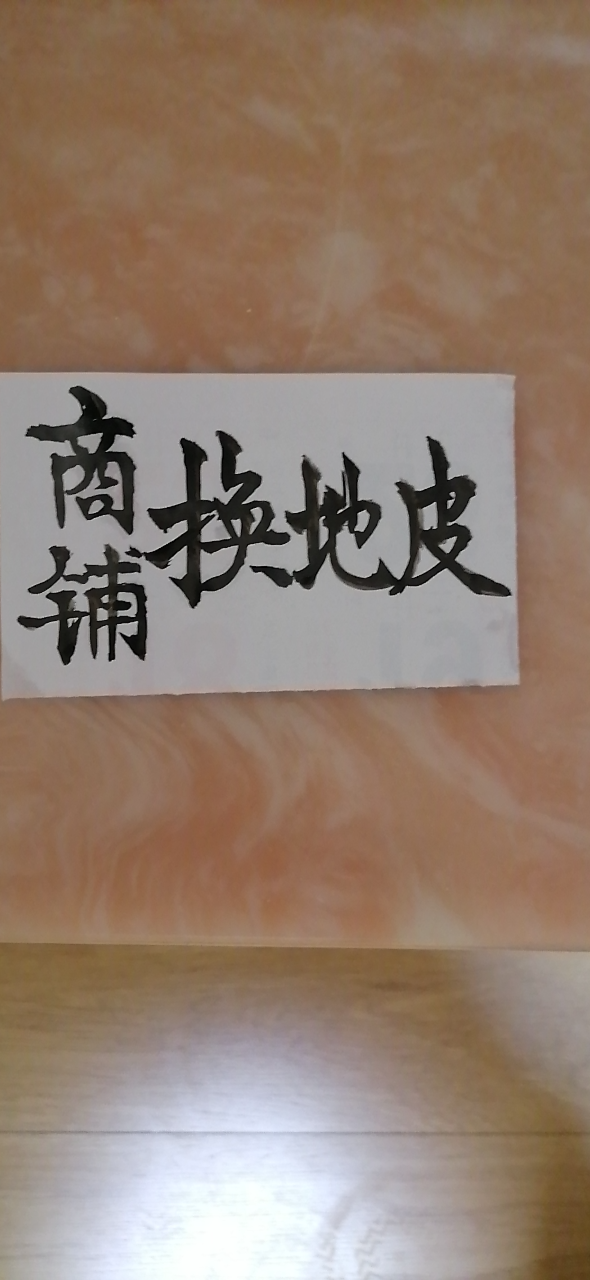 商铺换地皮